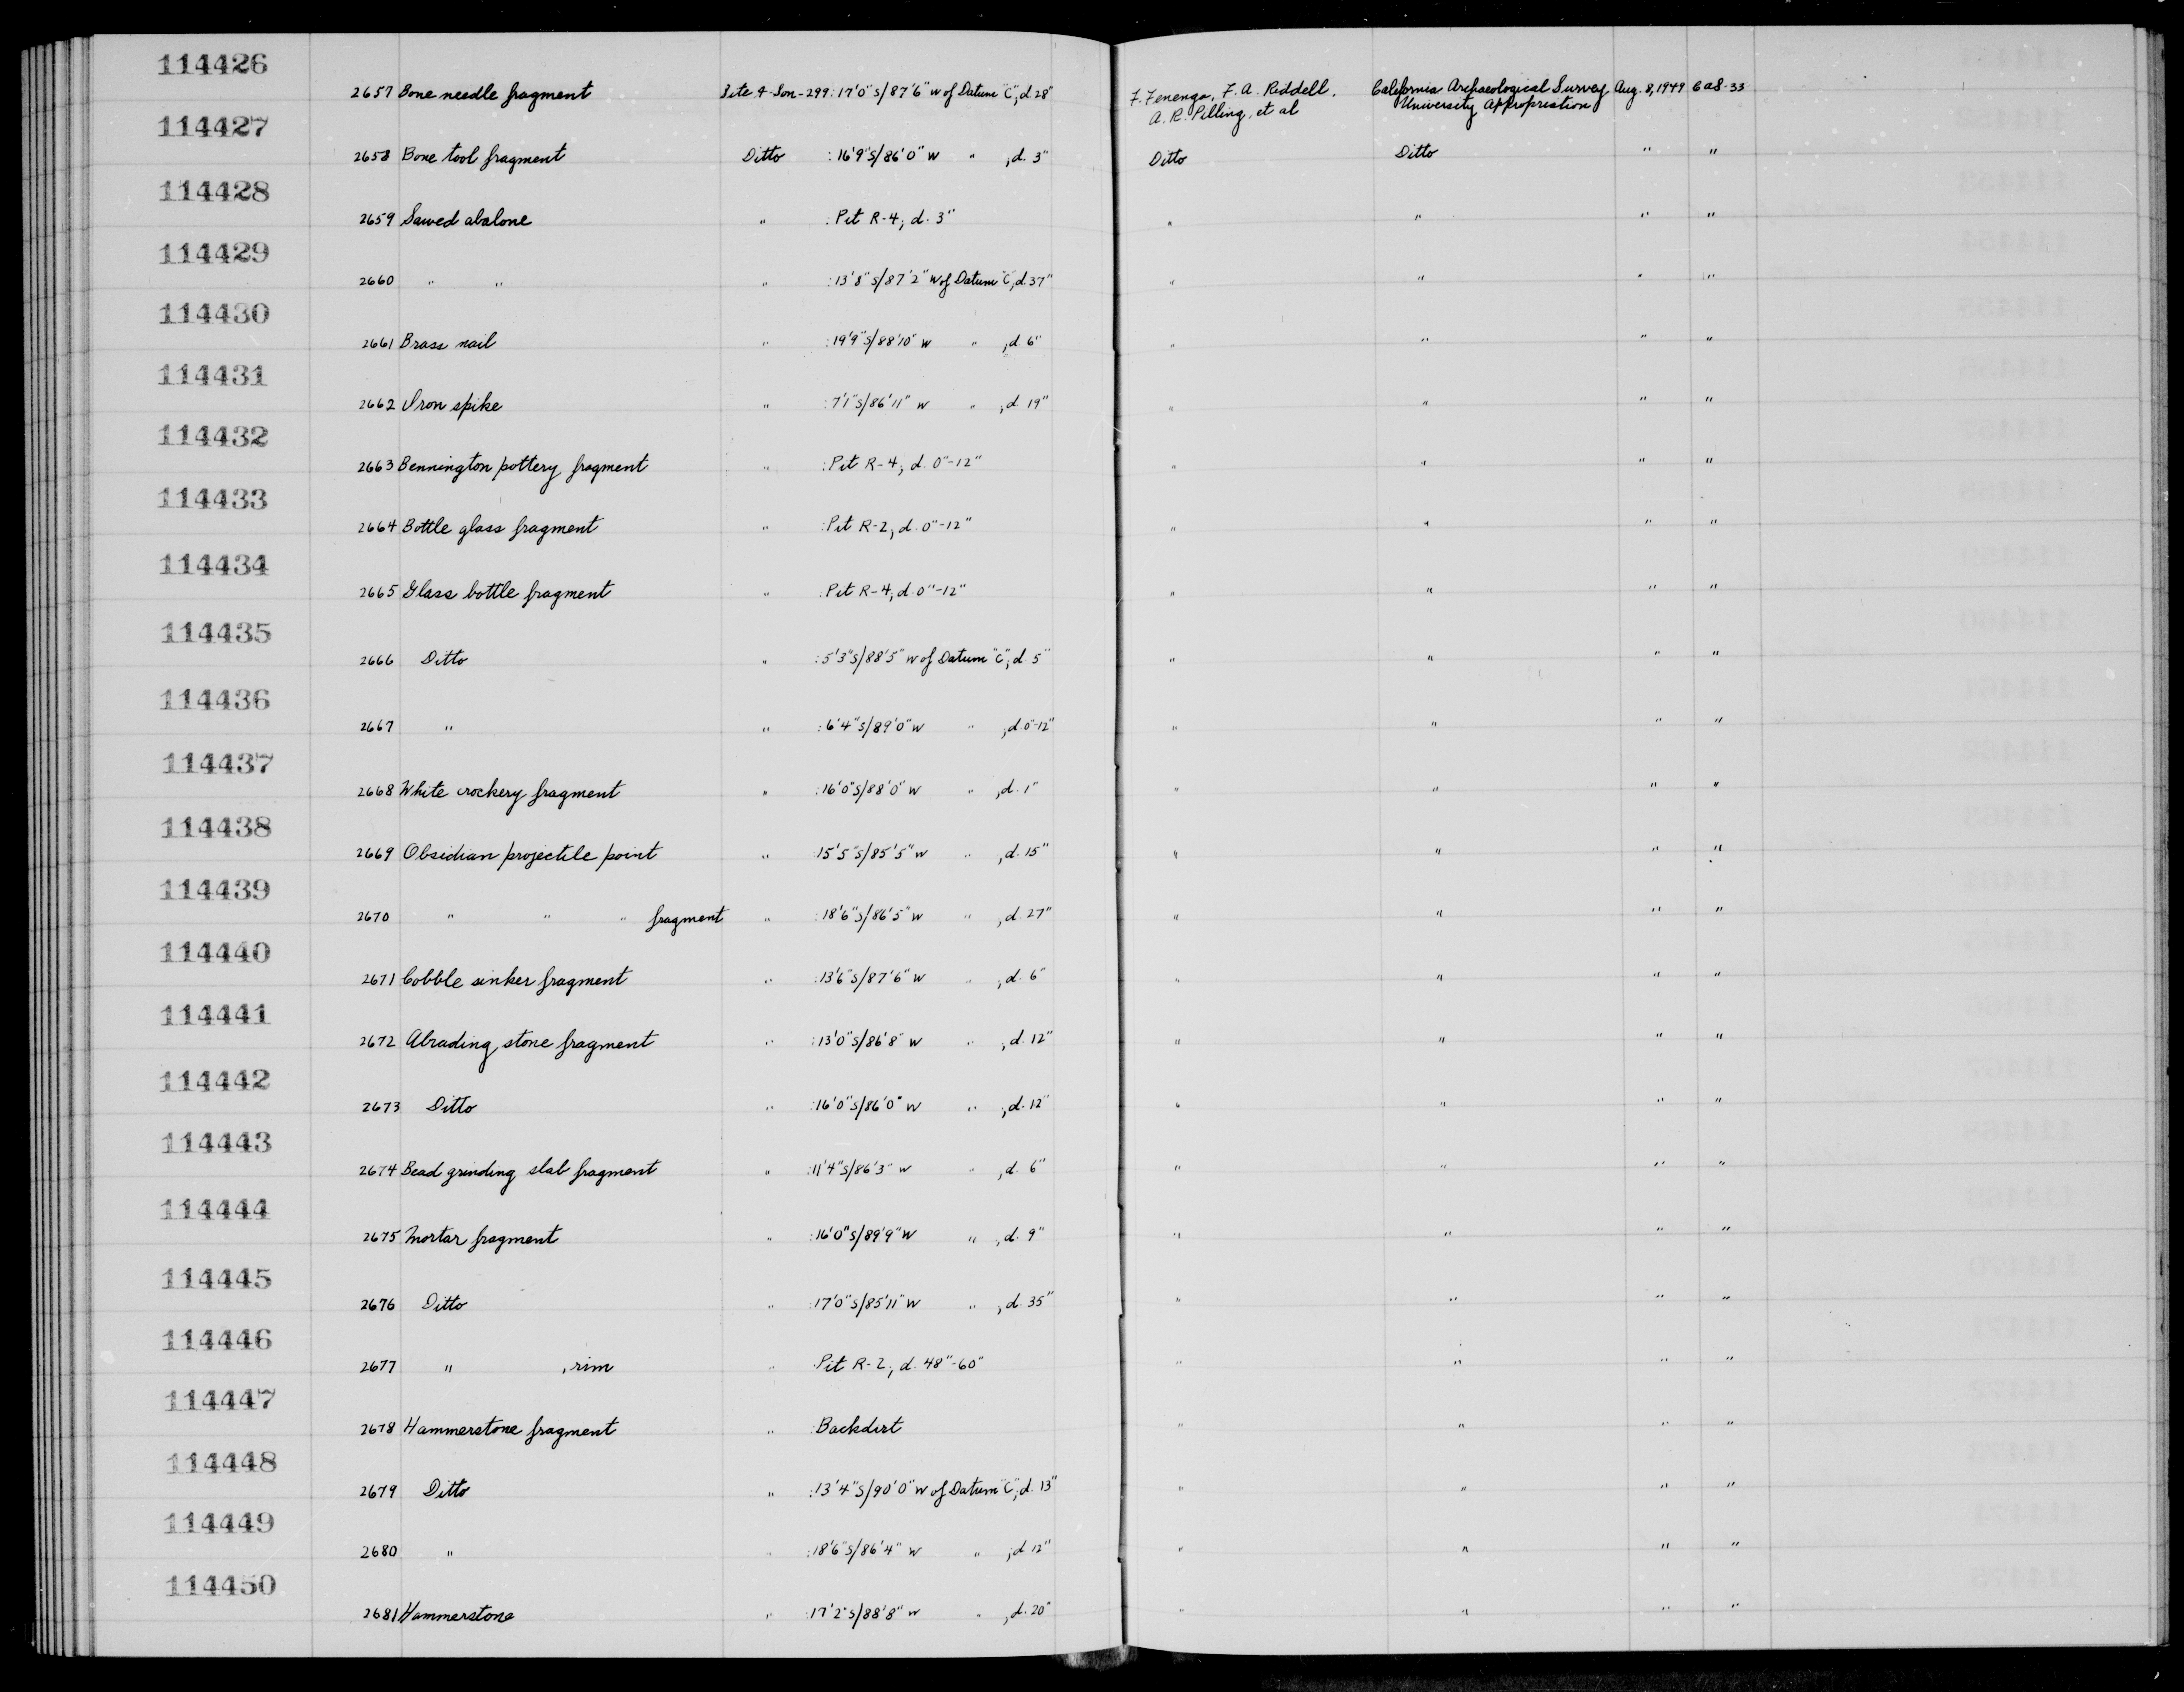 114426
2657 Bone needle fragment Site 4-Son-299: 17'0" S/87'6" W of Datum "C", d. 28" F. Fenenga, F. A. Riddell, California Archaeological Survey Aug. 8, 1949 CaS-33
A. R. Pilling, et al University Appropriation
114427
2658 Bone tool fragment Ditto : 16'9" S/86'0" W " , d. 3" Ditto Ditto " "
114428
2659 Sawed abalone " : Pit R-4, d. 3" " " " "
114429
2660 " " " : 13'8" S/87'2" W of Datum "C", d 37" " " " "
114430
2661 Brass nail " : 19'9" S/88'10" W " , d 6" " " " "
114431
2662 Iron spike " : 7'1" S/86'11" W " , d 19" " " " "
114432
2663 Bennington pottery fragment " : Pit R-4, d. 0"-12" " " " "
114433
2664 Bottle glass fragment " : Pit R-2, d. 0"-12" " " " "
114434
2665 Glass bottle fragment " : Pit R-4, d. 0"-12" " " " "
114435
2666 Ditto " : 5'3" S/88'5" W of Datum "C", d. 5" " " " "
114436
2667 " " : 6'4" S/89'0" W " , d. 0-12" " " " "
114437
2668 White crockery fragment " : 16'0" S/88'0" W " , d. 1" " " " "
114438
2669 Obsidian projectile point " : 15'5" S/85'5" W " , d. 15" " " " "
114439
2670 " " " fragment " : 18'6" S/86'5" W " , d. 27" " " " "
114440
2671 Cobble sinker fragment " : 13'6" S/87'6" W " , d. 6" " " " "
114441
2672 Abrading stone fragment " : 13'0" S/86'8" W " , d. 12" " " " "
114442
2673 Ditto " : 16'0" S/86'0" W " , d. 12" " " " "
114443
2674 Bead grinding slab fragment " : 11'4" S/86'3" W " , d. 6" " " " "
114444
2675 Mortar fragment " : 16'0" S/89'9" W " , d. 9" " " " "
114445
2676 Ditto " : 17'0" S/85'11" W " , d. 35" " " " "
114446
2677 " , rim " : Pit R-2, d. 48"-60" " " " "
114447
2678 Hammerstone fragment " : Backdirt " " " "
114448
2679 Ditto " : 13'4" S/90'0" W of Datum "C", d. 13" " " " "
114449
2680 " " : 18'6" S/86'4" W " , d 12" " " " "
114450
2681 Hammerstone " : 17'2" S/88'8" W " , d. 20" " " " "